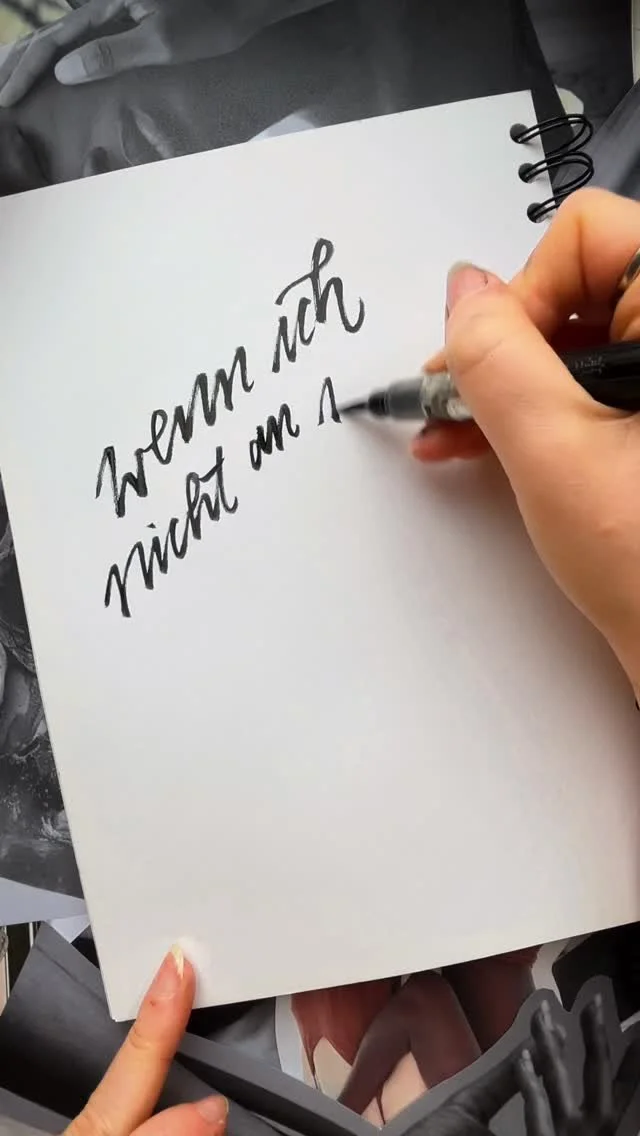 wenn ich
nicht an